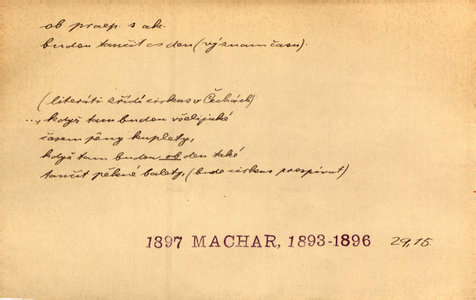 ob praep. s ak.
budou tančit os den (význam času).
(literáti zřídí cirkus v Čechách)
..., když tam budou všelijaké
časem pěny kuplety,
když tam budou ob den také
tančit pěkné balety, (bude cirkus prospívat)
1897 MACHAR, 1893-1896 29,15